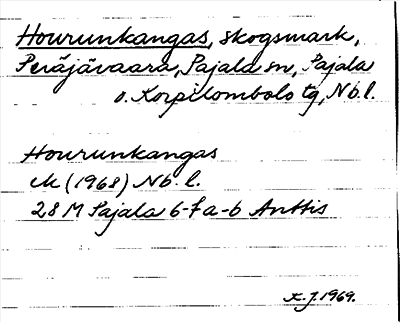 Hourunkangas, skogsmark,
Peräjävaara, Pajala sn, Pajala
o. Korpilombolo tg, Nb.l.
Hourunkangas
ek (1968) Nb. l.
28 M Pajala 6-7 a-b Anttis
K. J. 1969.